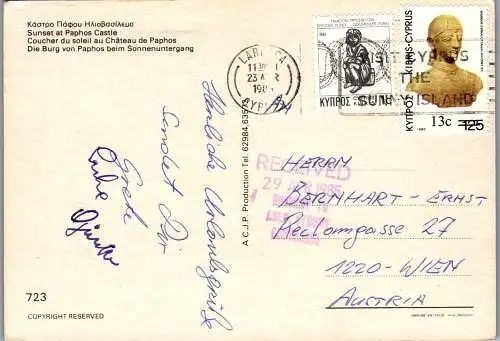 Κάστρο Πάφου Ηλιοβασίλεμα
Sunset at Paphos Castle
Coucher du soleil au Château de Paphos
Die Burg von Paphos beim Sonnenuntergang
LARNACA
23 APR
1985
CYPRUS
VISIT CYPRUS
THE
SUNNY ISLAND
ΚΥΠΡΟΣ
ΚΥΠΡΟΣ KIBRIS-CYPRUS
13c
125
An
RECEIVED
29 APR 1985
HERRN
BERNHART - ERNST
Reclamgasse 27
1220 - WIEN
AUSTRIA
Herzliche Urlaubsgrüße
Sendet Dir
Grete
A C.J.P. Production Tel. 62984, 63
723
COPYRIGHT RESERVED